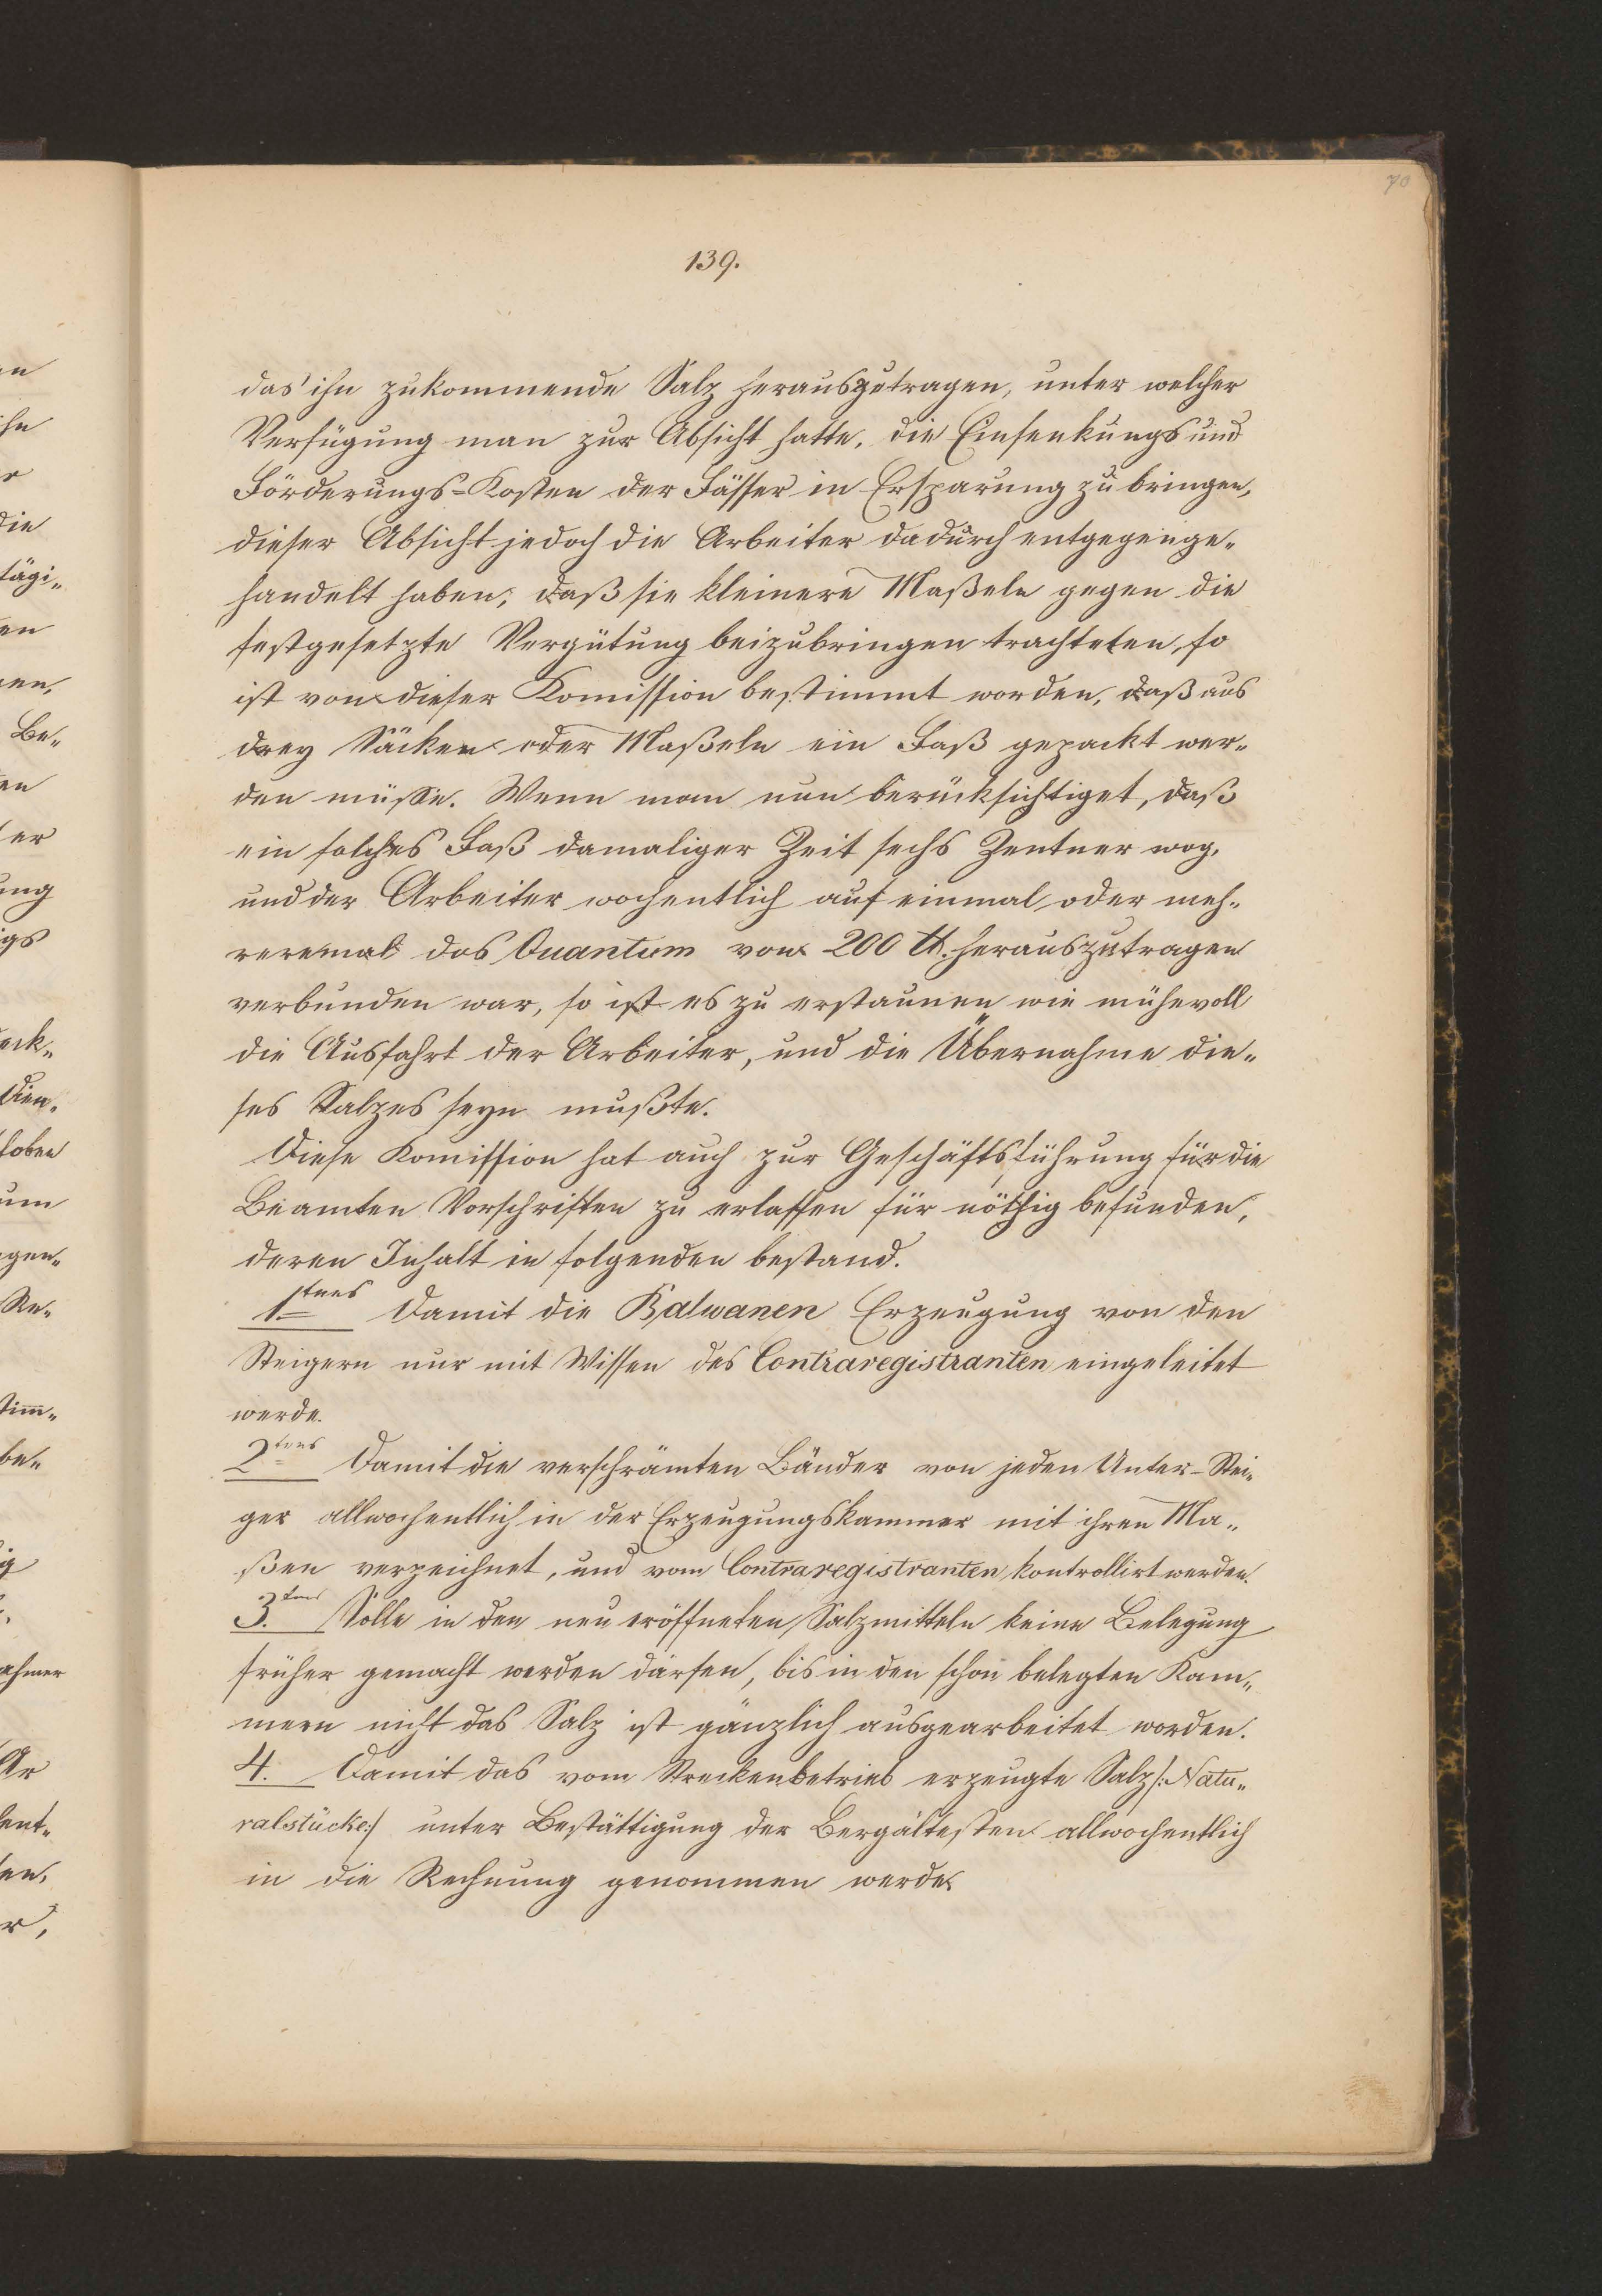 70
139.
das ihn zukommende Salz herauszutragen, unter welcher
Verfügung man zur Absicht hatte, die Einsenkungs und
Förderungs-Kosten der Fässer in Ersparung zu bringen,
dieser Absicht jedoch die Arbeiter dadurch entgegenge„
handelt haben, daß sie kleinere Maßeln gegen die
festgesetzte Vergütung beizubringen trachteten, so
ist von dieser Komission bestimmt worden, daß aus
drey Säcken oder Maßeln ein Faß gepackt wer„
den müsse. Wenn man nun berücksichtiget, daß
ein solches Faß damaliger Zeit sechs Zentner wog,
und der Arbeiter wochentlich auf einmal oder meh„
reremal das Quantum von 200 ℔. herauszutragen
verbunden war, so ist es zu erstaunen wie mühevoll
die Ausfahrt der Arbeiter, und die Übernahme die„
ses Salzes seyn mußte.
Diese Komission hat auch zur Geschäftsführung für die
Beamten Vorschriften zu erlassen für nöthig befunden,
deren Inhalt in folgenden bestand.
1tens Damit die Balwanen Erzeugung von den
Steigern nur mit Wissen des Contraregistranten eingeleitet
werde.
2tens Damit die verschrämten Bänder von jeden Unter-Stei„
ger allwochentlich in der Erzeugungskammer mit ihren Ma„
ßen verzeichnet, und vom Contraregistranten kontrollirt werden.
3.tens Solle in den neu eröffneten Salzmitteln keine Belegung
früher gemacht werden därfen, bis in den schon belegten Kam„
mern nicht das Salz ist gänzlich ausgearbeitet worden.
4. Damit das vom Streckenbetrieb erzeugte Salz /: Natu„
ralstücke:/ unter Bestättigung der Bergältesten allwochentlich
in die Rechnung genommen werde.